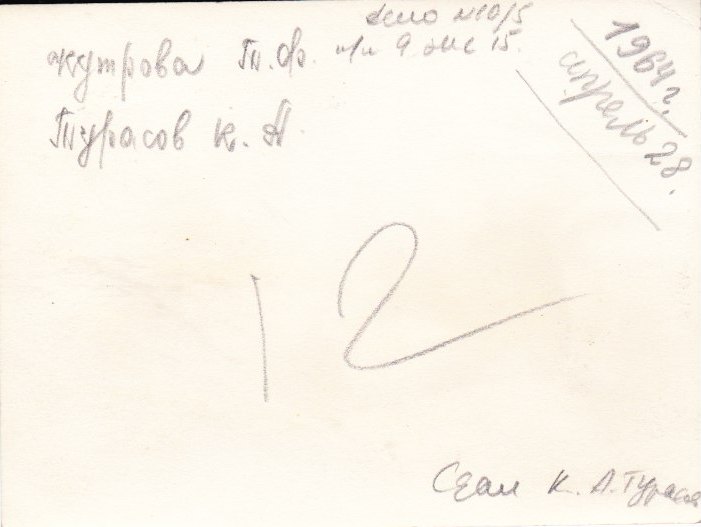 дело №10/5
Жутрова Т.Ф. п/п 9 опс 15.
Турасов К. А
1964 г.
апрель 28.
12
Сдал К. А. Турасов